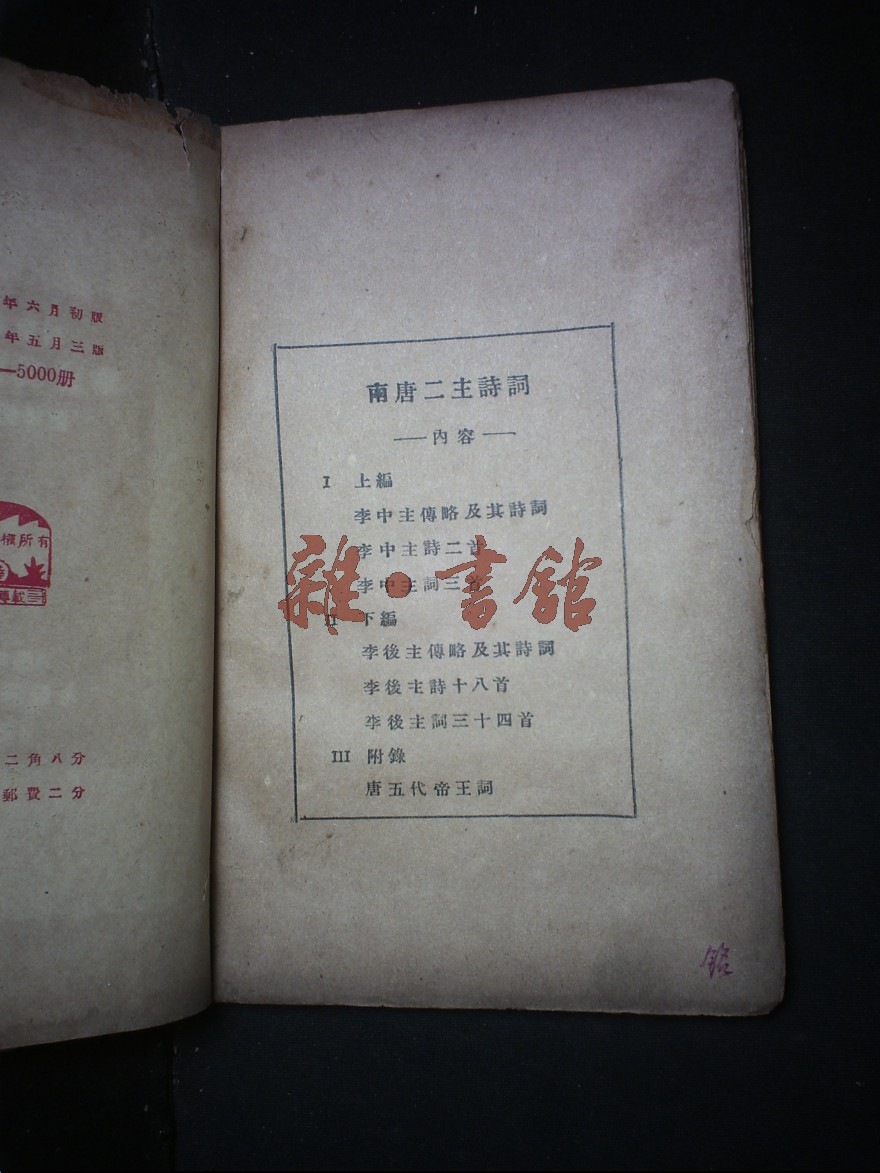 年六月初版
年五月三版
—5000册
權所有
尊載
二角八分
郵費二分
南唐二主詩詞
——內容——
I 上編
李中主傳略及其詩詞
李中主詩二首
李中主詞三首
II 下編
李後主傳略及其詩詞
李後主詩十八首
李後主詞三十四首
III 附錄
唐五代帝王詞
雜·書館